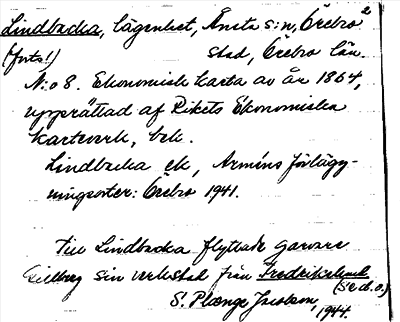 Lindbacka, lägenhet, Ånsta s:n, Örebro 2
(forts!) stad, Örebro län.
N:o 8. Ekonomisk karta av år 1864,
upprättad af Rikets Ekonomiska
Kartverk, bek.
Lindbacka ek, Arméns förlägg-
ningsorter: Örebro 1941.
Till Lindbacka flyttade garvare
Gillberg sin verkstad från Fredrikslund
(se d. o.)
S. Plænge Jacobson, 1944.